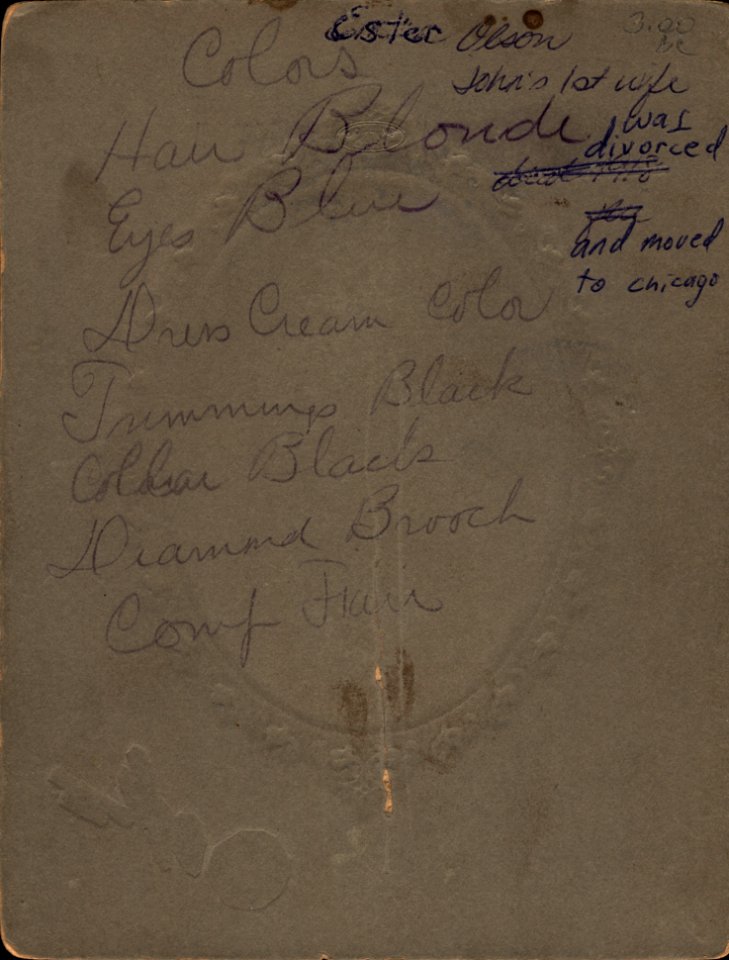 Ester Olson
3.00
John's 1st wife
was
divorced
and moved
to chicago
Colors
Hair Blonde
Eyes Blue
Dress Cream Color
Trimmings Black
Collar Black
Diamond Brooch
Comp Fair